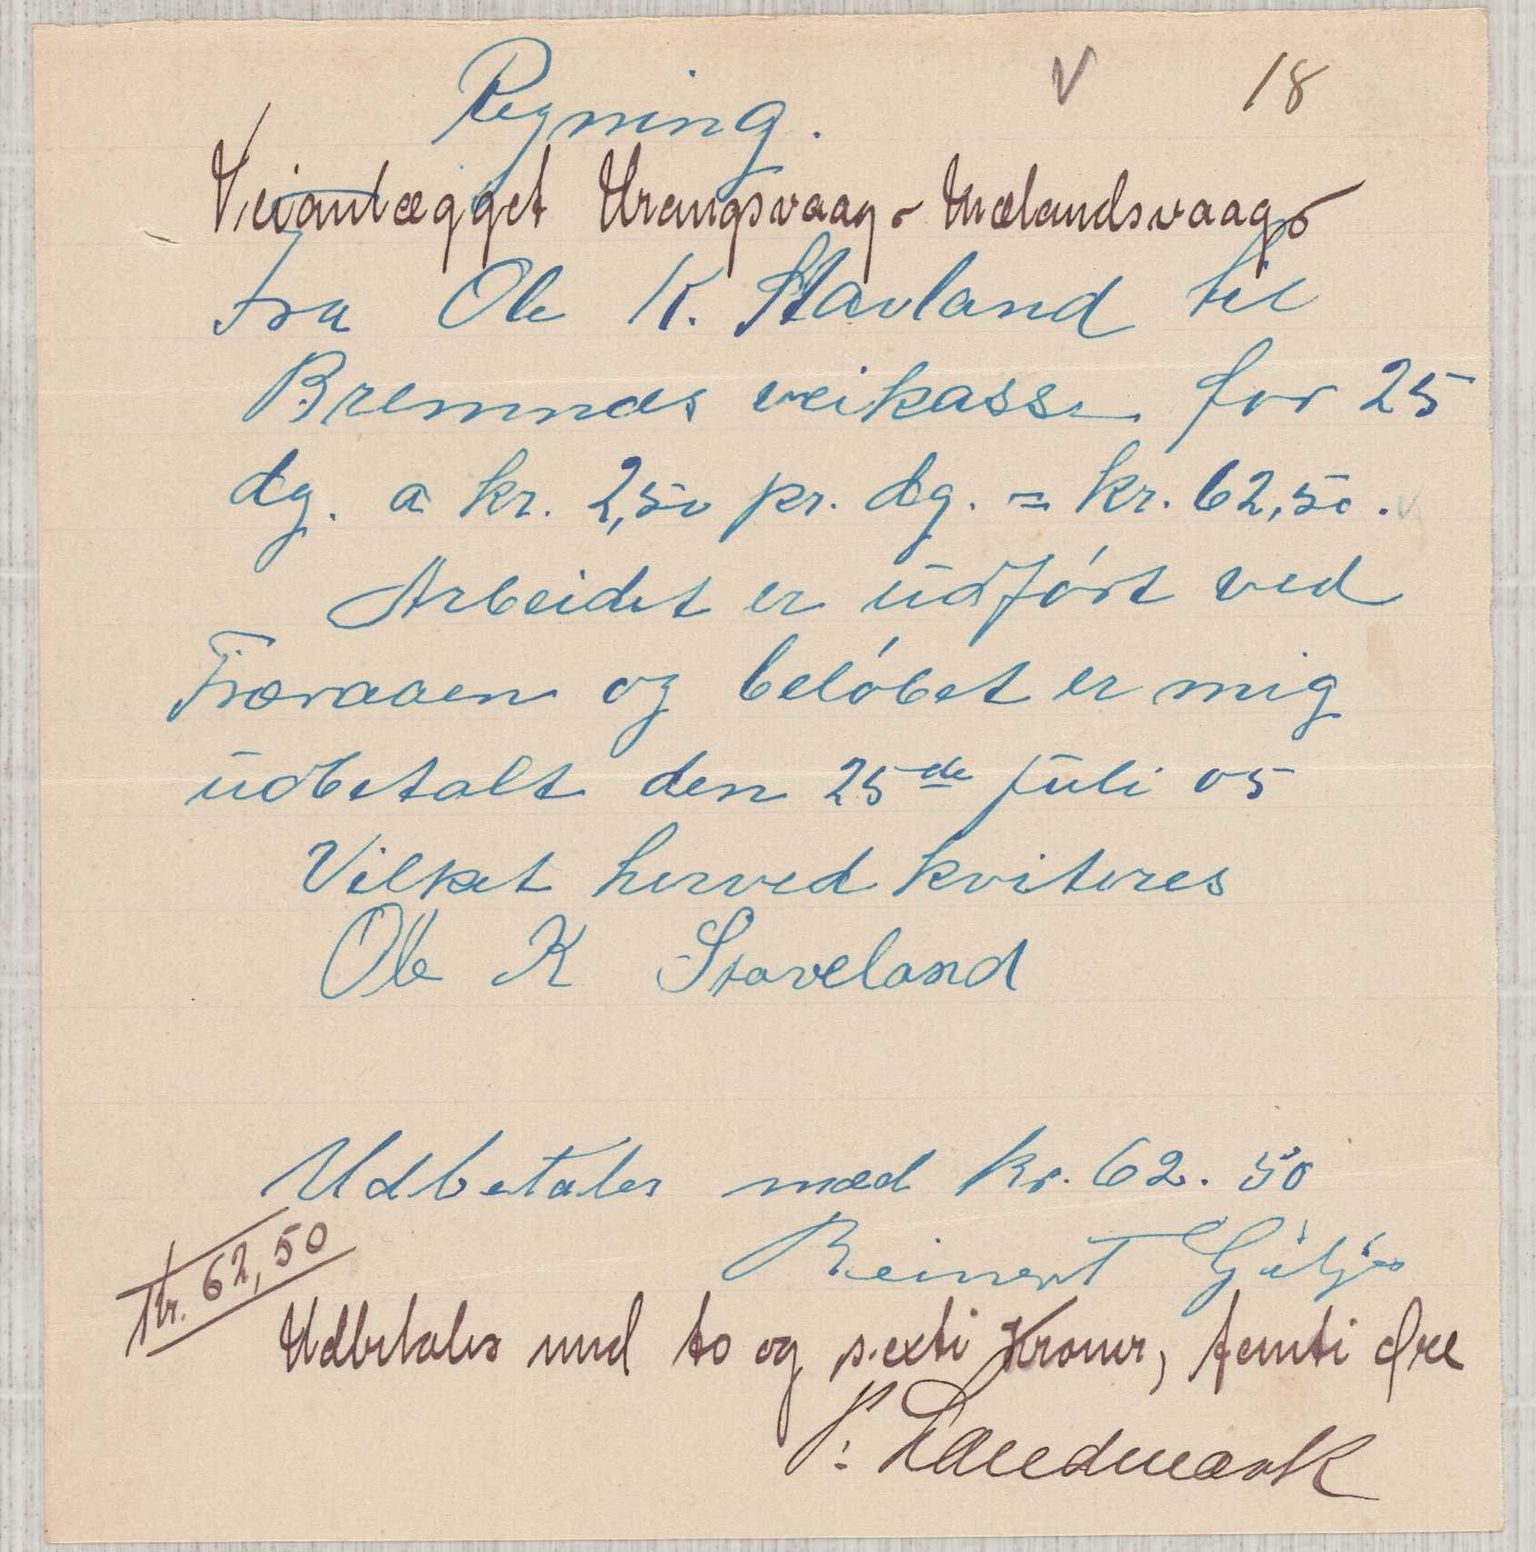 V 18
Regning.
Veianlægget Urangsvaag - Mælandsvaag
fra Ole K. Stavland til
Bremnes veikasse for 25
dg. a kr. 2,50 pr. dg. = kr. 62,50.
Arbeidet er udført ved
og beløbet er mig
udbetalt den 25de Juli 05
Vilket herved kviteres
Ole K Staveland
Udbetales med kr. 62.50
Kr. 62,50
Reinert Giljе
Udbetales med to og sexti Kroner, femti Øre
P. Landmark